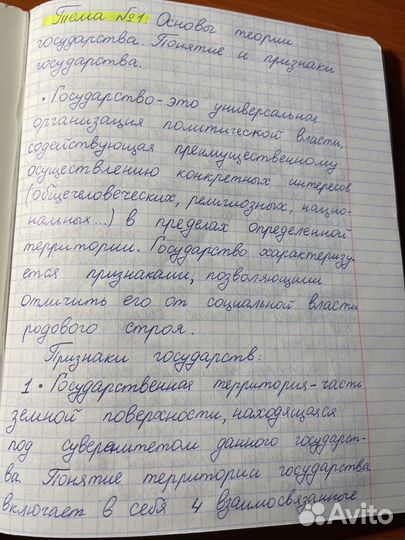 Тема №1: Основы теории
государства. Понятие и признаки
государства.
• Государство - это универсальная
организация политической власти,
содействующая преимущественному
осуществлению конкретных интересов
(общечеловеческих, религиозных, нацио-
нальных...) в пределах определенной
территории. Государство характеризу-
ется признаками, позволяющими
отличить его от социальной власти
родового строя.
Признаки государств:
1 • Государственная территория - часть
земной поверхности, находящаяся
под суверенитетом данного государст-
ва. Понятие территории государства
включает в себя 4 взаимосвязанные
Avito